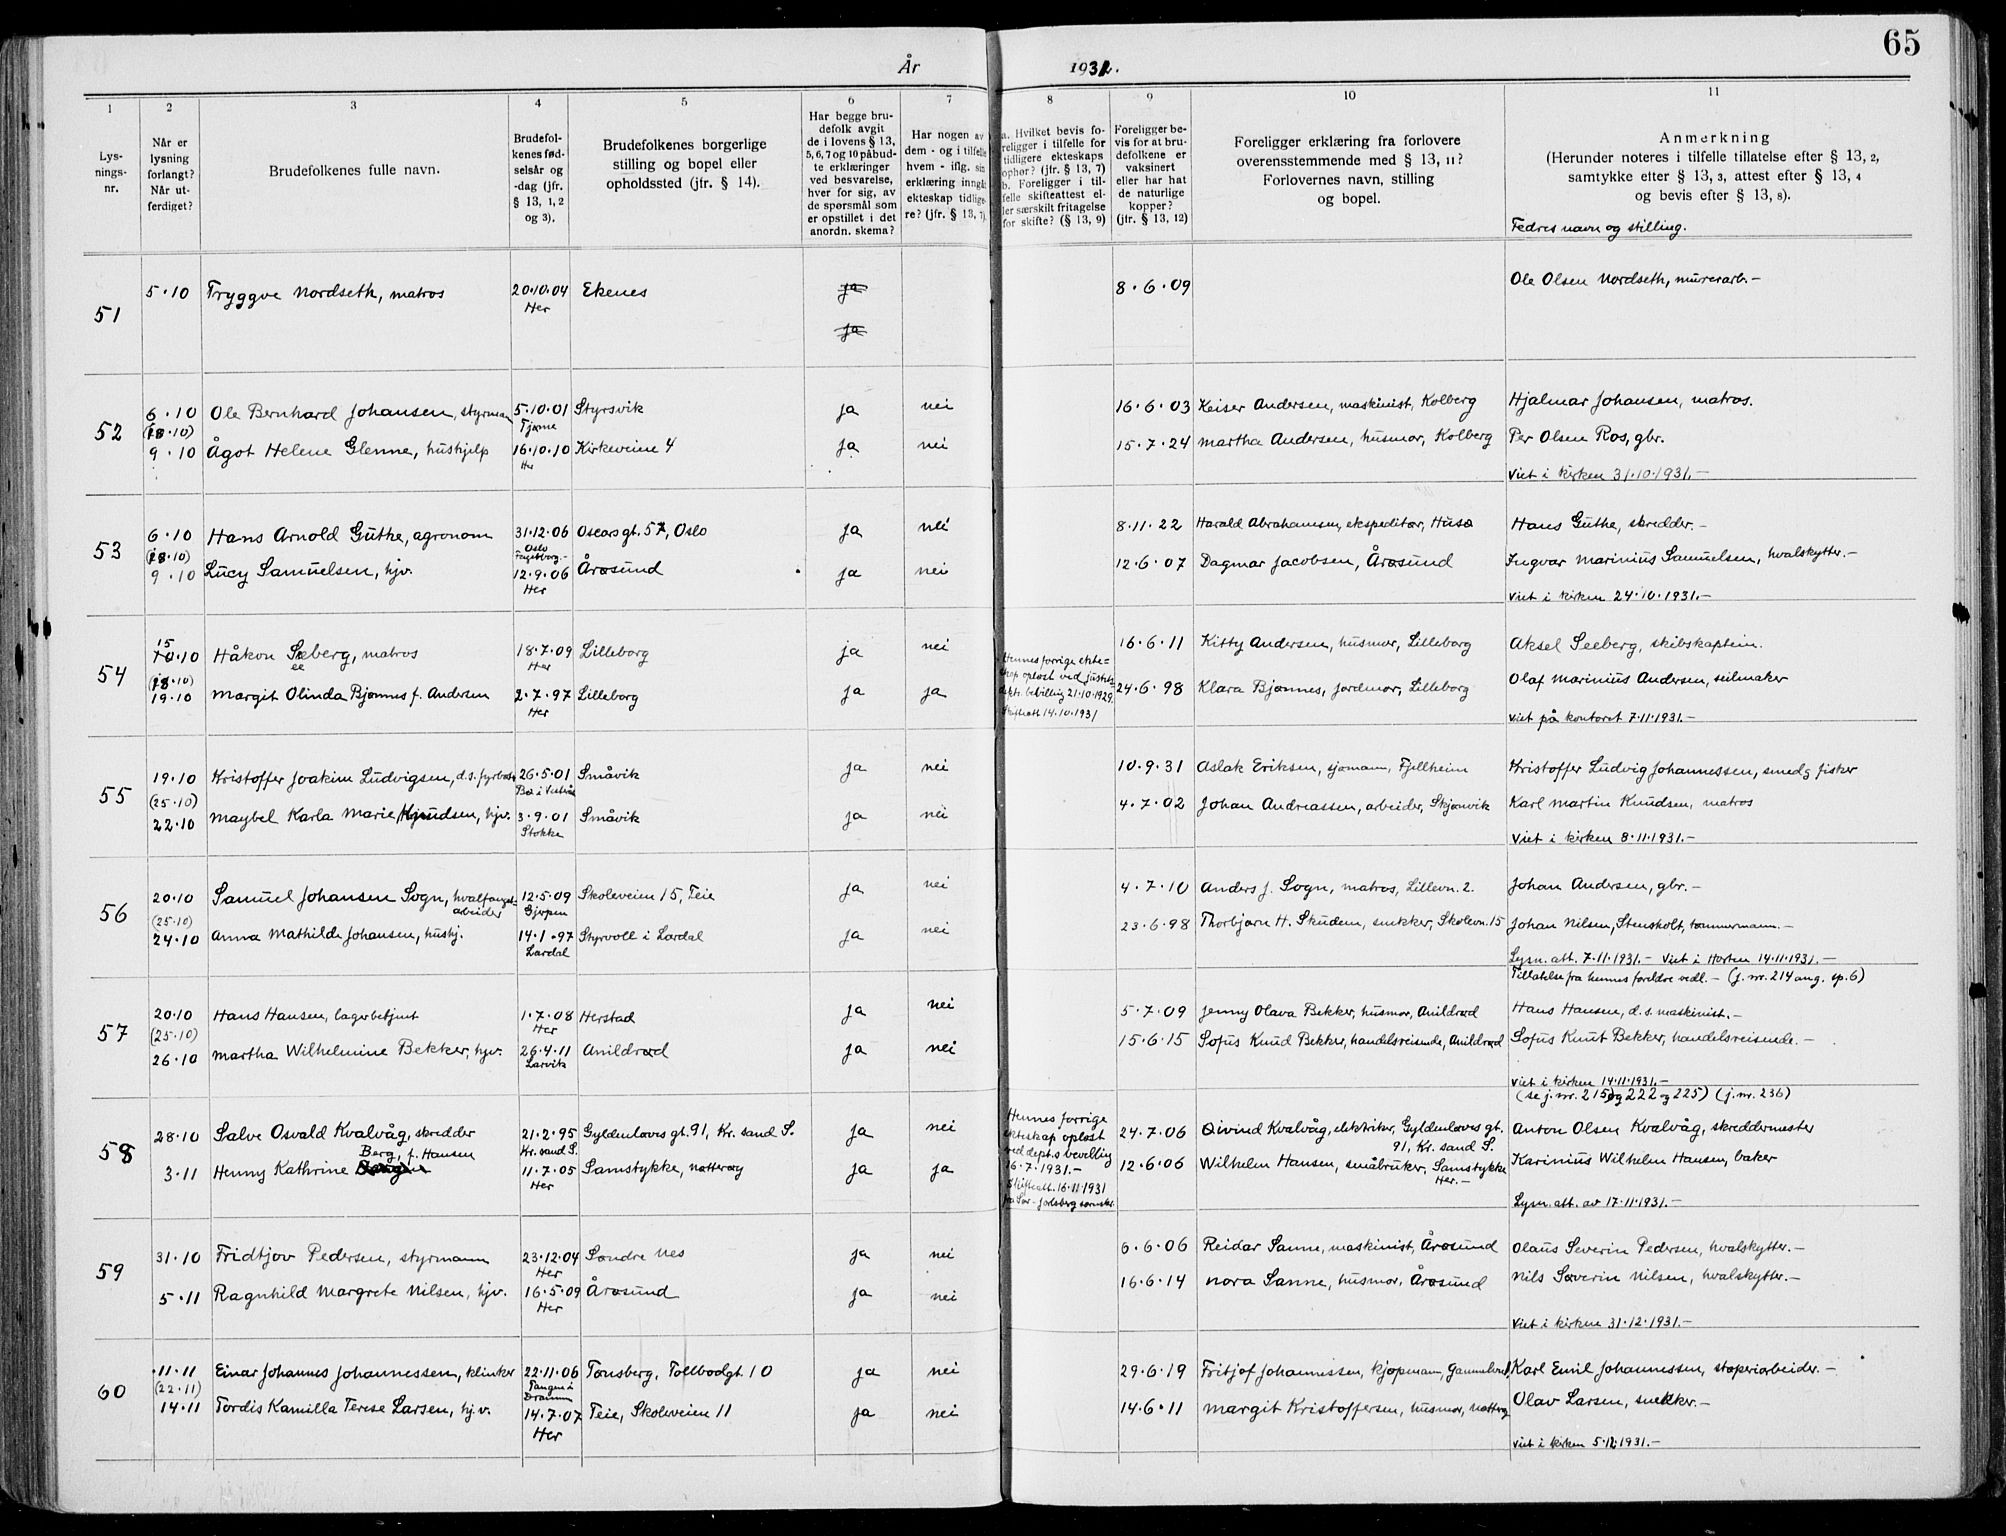 65
År 1931.
1 2 3 4 5 6 7 8 9 10 11
Lys-
nings-
nr.
Når er
lysning
forlangt?
Når ut-
ferdiget?
Brudefolkenes fulle navn.
Brudefol-
kenes fød-
selsår og
-dag (jfr.
§ 13, 1, 2
og 3).
Brudefolkenes borgerlige
stilling og bopel eller
opholdssted (jfr. § 14).
Har begge bru-
defolk avgit
de i lovens § 13,
5, 6, 7 og 10 påbud-
te erklæringer
ved besvarelse,
hver for sig, av
de spørsmål som
er opstillet i det
anordn. skema?
Har nogen av
dem - og i tilfelle
hvem - iflg. sin
erklæring inngåt
ekteskap tidlige-
re? (jfr. § 13, 7).
a. Hvilket bevis fo-
religger i tilfelle for
tidligere ekteskaps
ophør? (jfr. § 13, 7)
b. Foreligger i til-
felle skifteattest el-
ler særskilt fritagelse
for skifte? (§ 13, 9)
Foreligger be-
vis for at bru-
defolkene er
vaksinert
eller har hat
de naturlige
kopper?
(jfr. § 13, 12)
Foreligger erklæring fra forlovere
overensstemmende med § 13, 11?
Forlovernes navn, stilling
og bopel.
Anmerkning
(Herunder noteres i tilfelle tillatelse efter § 13, 2,
samtykke etter § 13, 3, attest efter § 13, 4
og bevis efter § 13, 8).
Fedres navn og stilling.
51 5·10 Tryggve Nordseth, matros 20·10·04 Ekenes ja 8·6·09 Ole Olsen Nordseth, murerarb.-
Her
ja
52 6·10 Ole Bernhard Johansen, styrmann 5·10·01 Styrsvik ja nei 16·6·03 Keiser Andersen, maskinist, Kolberg Hjalmar Johansen, matros.
(18·10) Tjøme
9·10 Ågot Helene Glenne, hushjelp 16·10·10 Kirkeveien 4 ja nei 15·7·24 Martha Andersen, husmor, Kolberg Per Olsen Ros, gbr.
Her
Viet i kirken 31·10·1931.-
53 6·10 Hans Arnold Guthe, agronom 31·12·06 Oscars gt. 57, Oslo ja nei 8·11·22 Harald Abrahamsen, ekspeditør, Husø Hans Guthe, skredder.-
(18·10) Oslo Fagerborg.-
9·10 Lucy Samuelsen, hjv. 12·9·06 Årøsund ja nei 12·6·07 Dagmar Jacobsen, Årøsund Ingvar Marinius Samuelsen, hvalskytter.-
Her
Viet i kirken 24·10·1931.-
54 15 10·10 Håkon Seeberg, matros 18·7·09 Lilleborg ja nei 16·6·11 Kitty Andersen, husmor, Lilleborg Aksel Seeberg, skibskaptein.
(18·10) Her
19·10 Margit Olinda Bjønnes f. Andersen 2·7·97 Lilleborg ja ja 24·6·98 Klara Bjønnes, jordmor, Lilleborg Olaf Marinius Andersen, seilmaker
Her
Hennes forrige ekte-
skap opløst ved justits-
dept. bevilling 21·10·1929.
Skifteatt 14·10·1931
Viet på kontoret 7·11·1931.-
55 19·10 Kristoffer Joakim Ludvigsen, d.s. fyrbøter 26·5·01 Småvik ja nei 10·9·31 Aslak Eriksen, sjømann, Fjellheim Kristoffer Ludvig Johannessen, smed og fisker
(25·10) Bø i Vesterålen
22·10 Maybel Karla Marie Knudsen, hjv. 3·9·01 Småvik ja nei 4·7·02 Johan Andreassen, arbeider, Skjærvik Karl Martin Knudsen, matros
Stokke
Viet i kirken 8·11·1931.-
56 20·10 Samuel Johansen Sogn, hvalfangst- 12·5·09 Skoleveien 15, Teie ja nei 4·7·10 Anders J. Sogn, matros, Lillevn. 2. Johan Andersen, gbr.-
(25·10) arbeider Gjerpen
24·10 Anna Mathilde Johansen, hushj. 14·1·97 Styrvoll i Lardal ja nei 23·6·98 Thorbjørn H. Skudem, snekker, Skolevn. 15 Johan Nilsen, Stensholt, tømmermann.-
Lardal
Lysn. att. 7·11·1931.- Viet i Horten 14·11·1931.-
Tillatelse fra hennes foreldre vedl.- (j. nr. 214 ang. sp. 6)
57 20·10 Hans Hansen, lagerbetjent 1·7·08 Herstad ja nei 5·7·09 Jenny Olava Bekker, husmor, Anildrød Hans Hansen, d.s. maskinist.-
(25·10) Her
26·10 Martha Wilhelmine Bekker, hjv. 26·4·11 Anildrød ja nei 15·6·15 Sofus Knud Bekker, handelsreisende, Anildrød Sofus Knut Bekker, handelsreisende.-
Larvik
Viet i kirken 14·11·1931.-
(se j. nr. 215 og 222 og 225) (j. nr. 236)
58 28·10 Salve Osvald Kvalvåg, skredder 21·2·95 Gyldenløves gt. 91, Kr. sand S. ja nei 24·7·06 Øivind Kvalvåg, elektriker, Gyldenløves gt. Anton Olsen Kvalvåg, skreddermester
Berg, f. Hansen Kr. sand S. 91, Kr. sand S.
3·11 Henny Kathrine 11·7·05 Samstykke, Nøtterøy ja ja 12·6·06 Wilhelm Hansen, småbruker, Samstykke Karinius Wilhelm Hansen, baker
Her Her.-
Hennes forrige
ekteskap opløst
ved dept.s bevilling
16·7·1931.-
Skifteatt. 16·11·1931
fra Sør-Jarlsberg sorenskr.
Lysn. att. av 17·11·1931.-
59 31·10 Fridtjov Pedersen, styrmann 23·12·04 Søndre Nes ja nei 6·6·06 Reidar Sanne, maskinist, Årøsund Olaus Severin Pedersen, hvalskytter.-
Her
5·11 Ragnhild Margrete Nilsen, hjv. 16·5·09 Årøsund ja nei 16·6·14 Nora Sanne, husmor, Årøsund Nils Søverin Nilsen, hvalskytter.-
Her
Viet i kirken 31·12·1931.-
60 11·11 Einar Johannes Johannessen, klinker 22·11·06 Tønsberg, Tollbodgt. 10 ja nei 29·6·19 Fritjof Johannessen, kjøpmann, Karl Emil Johannessen, støperiarbeider.-
(22·11) Tangen i Drammen
14·11 Tordis Kamilla Terese Larsen, hjv. 14·7·07 Teie, Skoleveien 11 ja nei 14·6·11 Margit Kristoffersen, husmor, Nøtterøy Olav Larsen, snekker.-
Her
Viet i kirken 5·12·1931.-